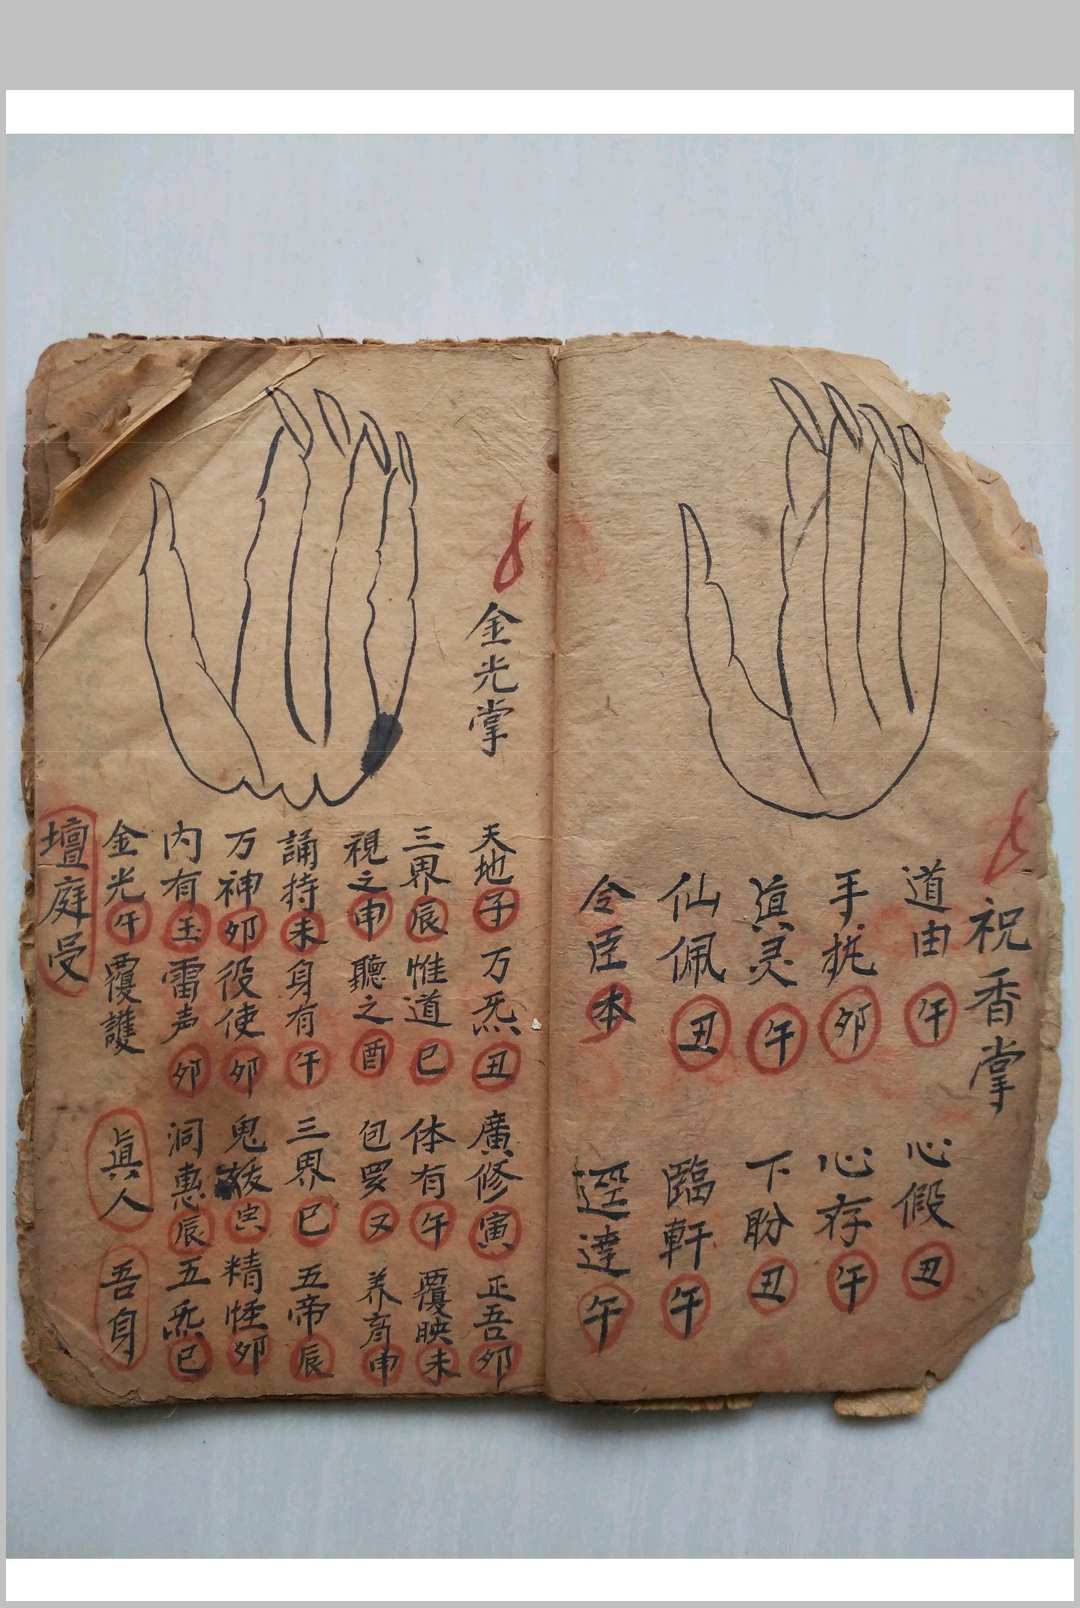 祝香掌
道由午 心假丑
手 卯 心存午
眞灵午 下盼丑
仙佩丑 臨軒午
令臣本 逕達午
金光掌
天地子 万炁丑 廣修寅 正吾夘
三界辰 惟道巳 体有午 覆映未
視之申 聽之酉 包罗又 养育申
誦持未 身有午 三界巳 五帝辰
万神夘 役使夘 鬼 精怪夘
内有玉 雷声夘 洞惠辰 五炁巳
金光午 覆護 眞人 吾身
壇庭受